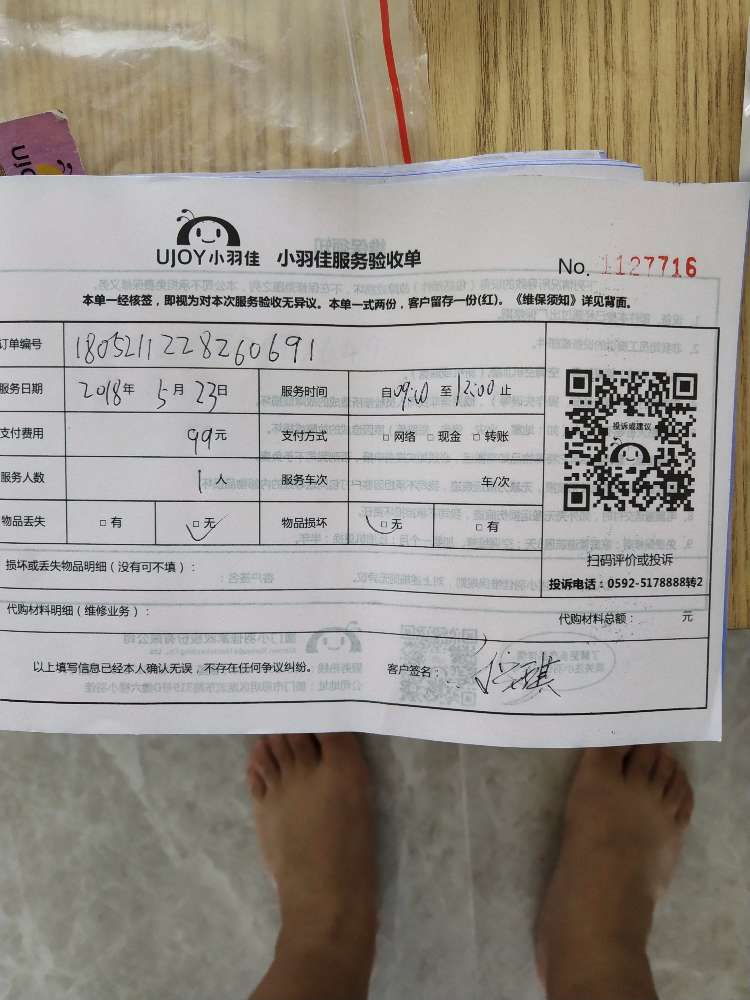 UJOY小羽佳 小羽佳服务验收单
No. 1127716
本单一经核签，即视为对本次服务验收无异议。本单一式两份，客户留存一份(红)。《维保须知》详见背面。
订单编号 180521122826069 1
服务日期 2018年 5月 23日 服务时间 自09:00 至 12:00 止
支付费用 99元 支付方式 □ 网络 □ 现金 □ 转账
服务人数 1 人 服务车次 车/次
物品丢失 □ 有 □ 无 物品损坏 □ 无 □ 有
投诉或建议
扫码评价或投诉
投诉电话：0592-5178888转2
损坏或丢失物品明细（没有可不填）：
代购材料明细（维修业务）：
代购材料总额： 元
以上填写信息已经本人确认无误，不存在任何争议纠纷。
客户签名：